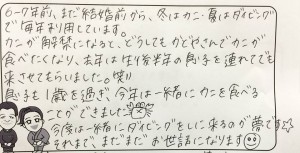 6〜7年前、まだ結婚前から、冬はカニ・夏はダイビング
で毎年利用しています。
カニが解禁になると、どうしてもかどやさんでカニが
食べたくなり、去年は生後半年の息子を連れてでも
来させてもらいました。笑!!
息子も1歳を過ぎ、今年は一緒にカニを食べる
ことができました
今後は一緒にダイビングをしに来るのが夢です☆
それまで、まだまだお世話になります